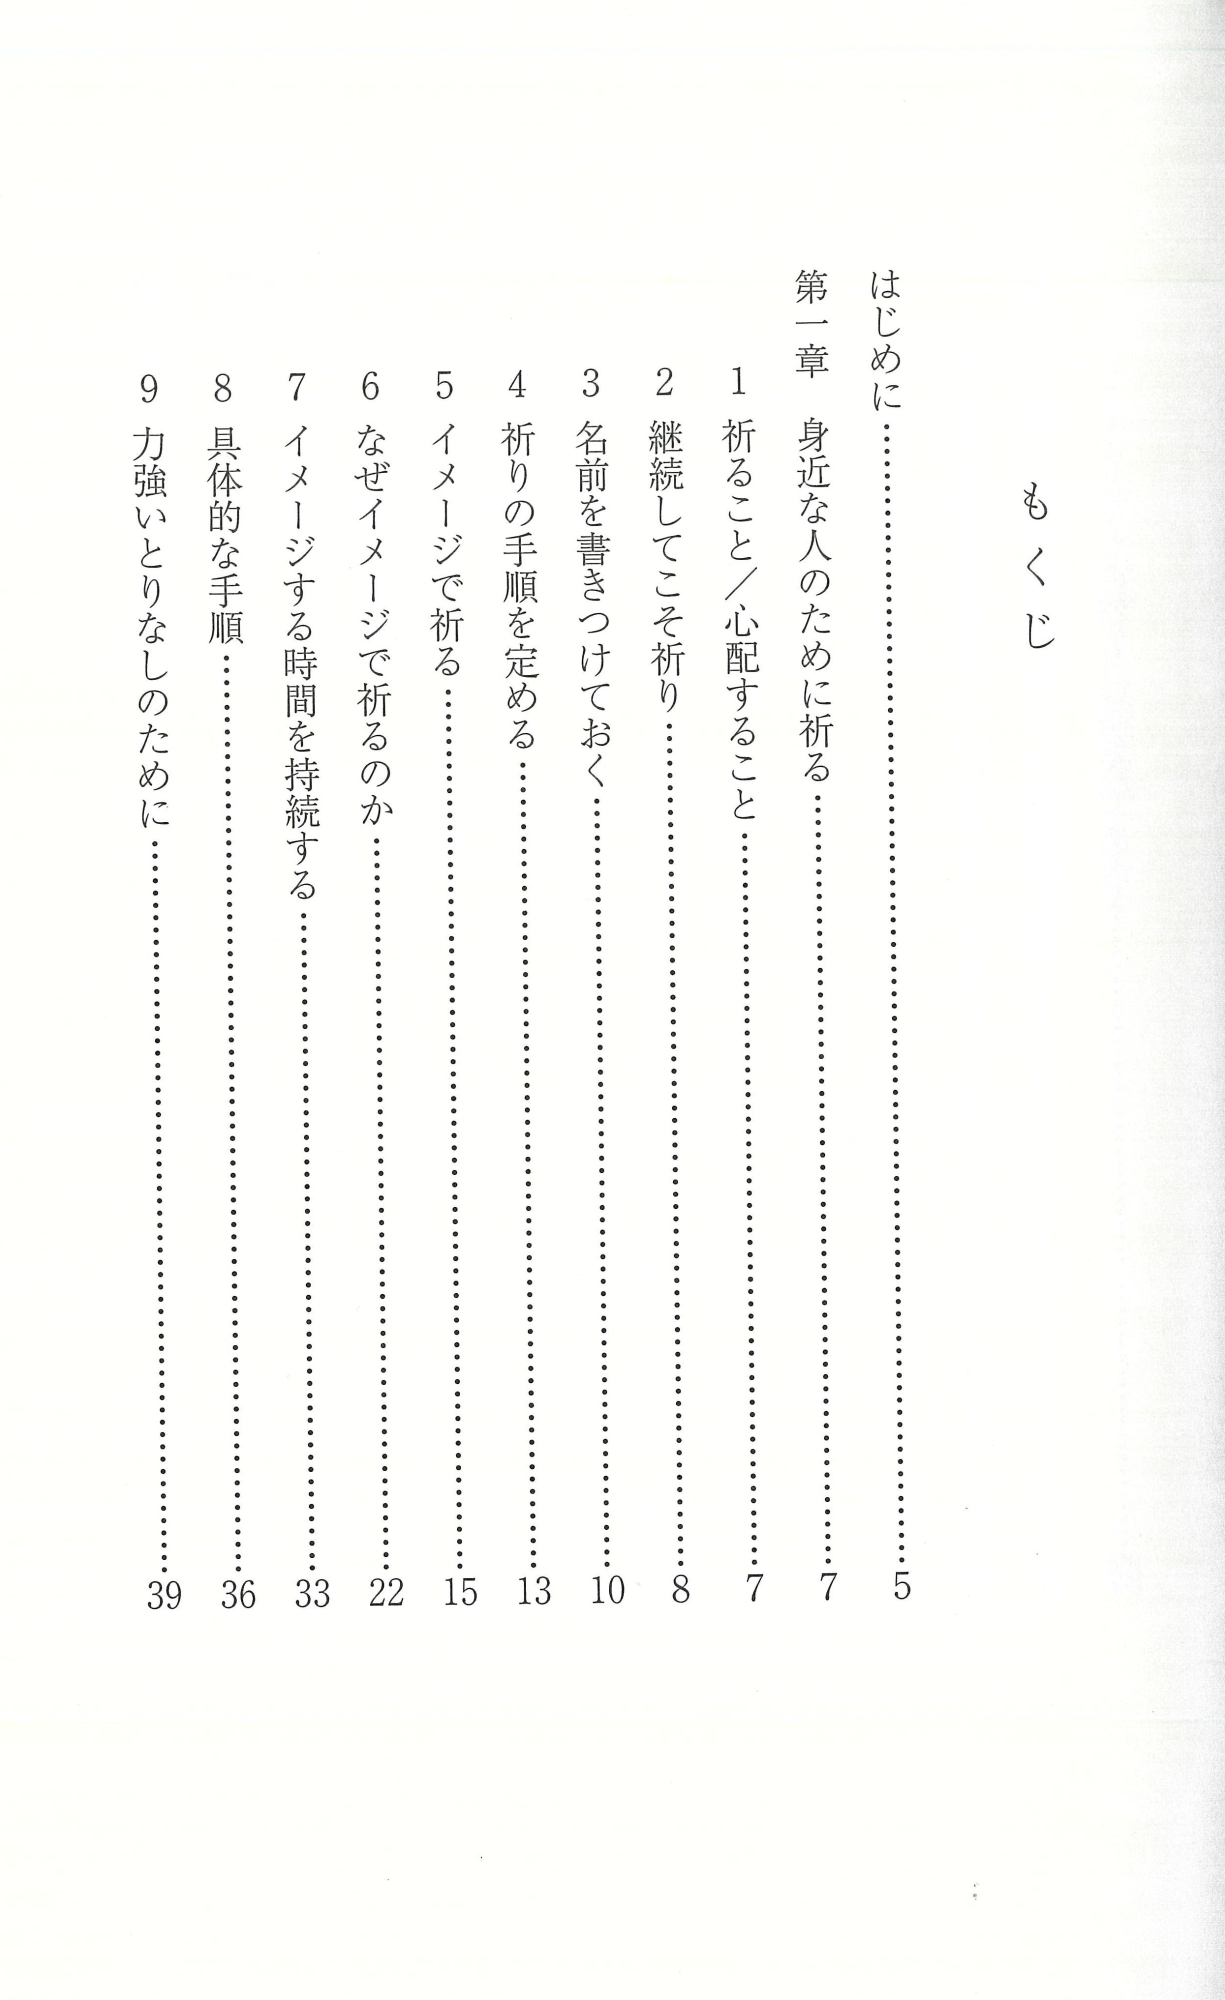 もくじ
はじめに……………………5
第一章　身近な人のために祈る……………………7
1　祈ること／心配すること……………………7
2　継続してこそ祈り……………………8
3　名前を書きつけておく……………………10
4　祈りの手順を定める……………………13
5　イメージで祈る……………………15
6　なぜイメージで祈るのか……………………22
7　イメージする時間を持続する……………………33
8　具体的な手順……………………36
9　力強いとりなしのために……………………39